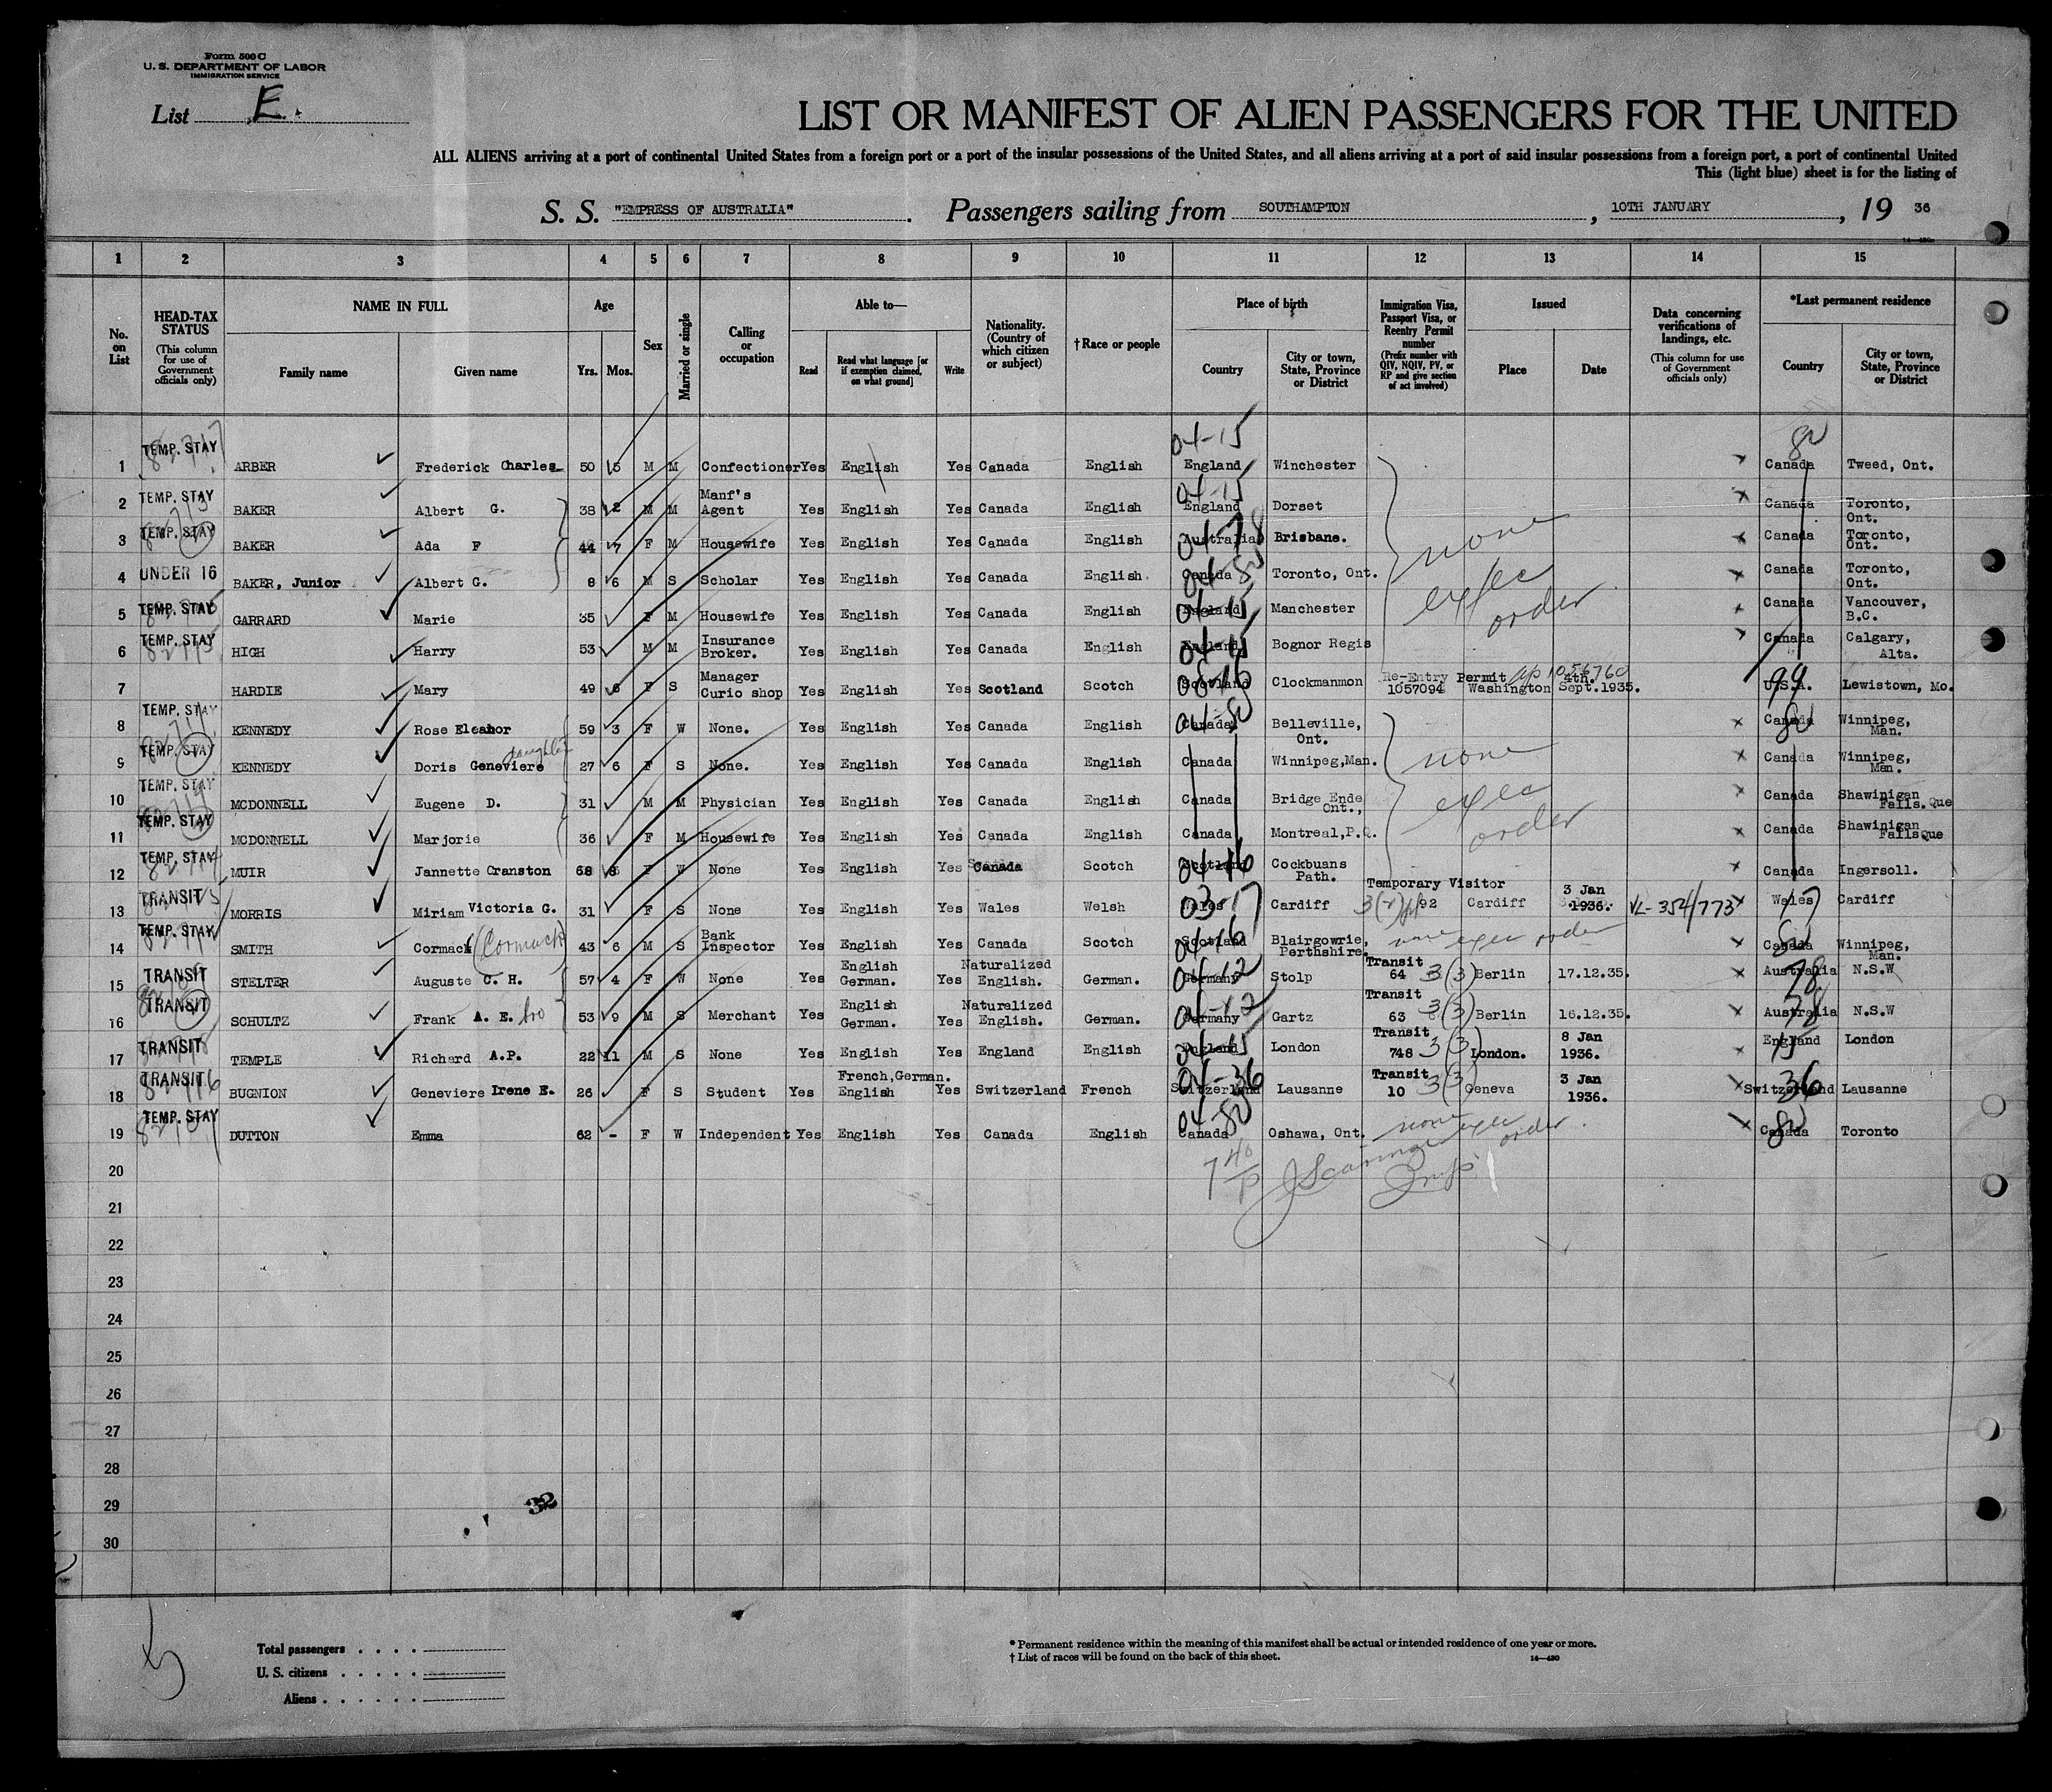 Form 500 C
U. S. DEPARTMENT OF LABOR
IMMIGRATION SERVICE
List E.
LIST OR MANIFEST OF ALIEN PASSENGERS FOR THE UNITED
ALL ALIENS arriving at a port of continental United States from a foreign port or a port of the insular possessions of the United States, and all aliens arriving at a port of said insular possessions from a foreign port, a port of continental United
This (light blue) sheet is for the listing of
S. S. "EMPRESS OF AUSTRALIA" . Passengers sailing from SOUTHAMPTON , 10TH JANUARY , 19 36
1 2 3 4 5 6 7 8 9 10 11 12 13 14 15
No. on List
HEAD-TAX STATUS (This column for use of Government officials only)
NAME IN FULL Family name Given name
Age Yrs. Mos.
Sex
Married or single
Calling or occupation
Able to— Read Read what language [or if exemption claimed, on what ground] Write
Nationality. (Country of which citizen or subject)
†Race or people
Place of birth Country City or town, State, Province or District
Immigration Visa, Passport Visa, or Reentry Permit number (Prefix number with QIV, NQIV, PV, or RP and give section of act involved)
Issued Place Date
Data concerning verifications of landings, etc. (This column for use of Government officials only)
*Last permanent residence Country City or town, State, Province or District
1 TEMP. STAY ARBER Frederick Charles 50 5 M M Confectioner Yes English Yes Canada English England 04-15 Winchester Canada 80 Tweed, Ont.
2 TEMP. STAY BAKER Albert G. 38 2 M M Manf's Agent Yes English Yes Canada English England 04-15 Dorset Canada Toronto, Ont.
3 TEMP. STAY BAKER Ada F 44 7 F M Housewife Yes English Yes Canada English Australia 04-78 Brisbane. Canada Toronto, Ont.
none
exec
order
4 UNDER 16 BAKER, Junior Albert G. 8 6 M S Scholar Yes English Yes Canada English Canada 04-80 Toronto, Ont. Canada Toronto, Ont.
5 TEMP. STAY GARRARD Marie 35 F M Housewife Yes English Yes Canada English England 04-15 Manchester Canada Vancouver, B.C.
6 TEMP. STAY HIGH Harry 53 M M Insurance Broker. Yes English Yes Canada English England 04-15 Bognor Regis Canada Calgary, Alta.
7 HARDIE Mary 49 6 F S Manager Curio shop Yes English Yes Scotland Scotch Scotland 08-16 Clockmannon Re-Entry Permit 1057094 Washington 4th. Sept.1935. U.S.A. 99 Lewistown, Mo.
8 TEMP. STAY KENNEDY Rose Eleanor 59 3 F W None. Yes English Yes Canada English Canada 04-80 Belleville, Ont. Canada 80 Winnipeg, Man.
9 TEMP. STAY KENNEDY Doris Geneviere daughter 27 6 F S None. Yes English Yes Canada English Canada Winnipeg,Man. Canada Winnipeg, Man.
none
exec
order
10 TEMP. STAY MCDONNELL Eugene D. 31 M M Physician Yes English Yes Canada English Canada Bridge Ende Ont., Canada Shawinigan Falls. Que
11 TEMP. STAY MCDONNELL Marjorie 36 F M Housewife Yes English Yes Canada English Canada Montreal,P.Q. Canada Shawinigan Falls Que
12 TEMP. STAY MUIR Jannette Cranston 68 8 F W None Yes English Yes Canada Scotch Scotland 04-16 Cockbuans Path. Canada Ingersoll.
13 TRANSIT MORRIS Miriam Victoria G. 31 F S None Yes English Yes Wales Welsh Wales 03-17 Cardiff Temporary Visitor 92 Cardiff 3 Jan 1936. VL-354/773 Wales 17 Cardiff
14 TEMP. STAY SMITH Cormack (Cormack) 43 6 M S Bank Inspector Yes English Yes Canada Scotch Scotland 04-16 Blairgowrie, Perthshire. none exec order Canada Winnipeg, Man.
15 TRANSIT STELTER Auguste C. H. 57 4 F W None Yes English German. Yes Naturalized English. German. Germany 04-12 Stolp Transit 64 3(3) Berlin 17.12.35. Australia 78 N.S.W
16 TRANSIT SCHULTZ Frank A. E. bro 53 9 M S Merchant Yes English German. Yes Naturalized English. German. Germany 04-12 Gartz Transit 63 3(3) Berlin 16.12.35. Australia 78 N.S.W
17 TRANSIT TEMPLE Richard A.P. 22 11 M S None Yes English Yes England English England 04-15 London Transit 748 3(3) London. 8 Jan 1936. England 15 London
18 TRANSIT BUGNION Geneviere Irene E. 26 F S Student Yes French,German. English Yes Switzerland French Switzerland 04-36 Lausanne Transit 10 3(3) Geneva 3 Jan 1936. Switzerland 36 Lausanne
19 TEMP. STAY DUTTON Emma 62 - F W Independent Yes English Yes Canada English Canada 04-80 Oshawa, Ont. none exec order Canada 80 Toronto
20
21
22
23
24
25
26
27
28
29
32
30
Total passengers . . . .
U. S. citizens . . . . .
Aliens . . . . . .
* Permanent residence within the meaning of this manifest shall be actual or intended residence of one year or more.
† List of races will be found on the back of this sheet.
14—430